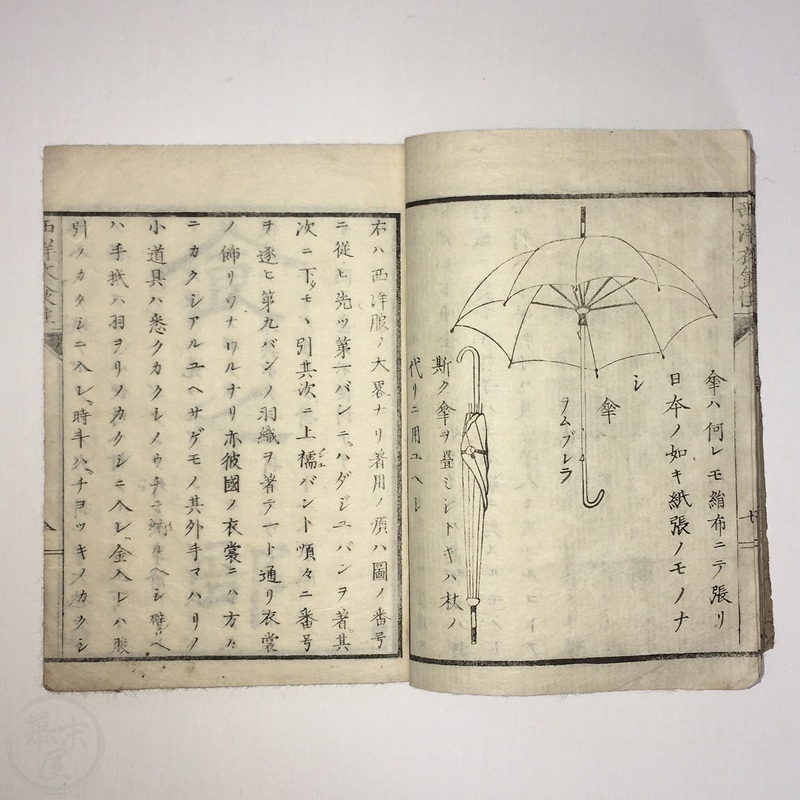 西洋衣食住
傘ハ何レモ絹布ニテ張リ
日本ノ如キ紙張ノモノナ
シ
傘
ヲムブレラ
斯ク傘ヲ畳ミシトキハ杖ノ
代リニ用ユヘシ
右ハ西洋服ノ大畧ナリ著用ノ順ハ圖ノ番号
ニ從ヒ先ツ第一バンニ、ハダジユバンヲ著其
次ニ下タモヽ引其次ニ上襦バント順々ニ番号
ヲ逐ヒ第九バンノ羽織ヲ著テ一ト通リ衣裳
ノ餝リツナワルナリ亦彼國ノ衣裳ニハ方々
ニカクシアルユヘサゲモノ其外手マハリノ
小道具ハ悉クカクシノウチニ ヘシ譬ヘ
ハ手拭ハ羽ヲリノカクシニ入レ金入レハ股
引ノカクシニ入レ、時斗ハ、チヨツキノカクシ
西洋衣食住
幕末屋